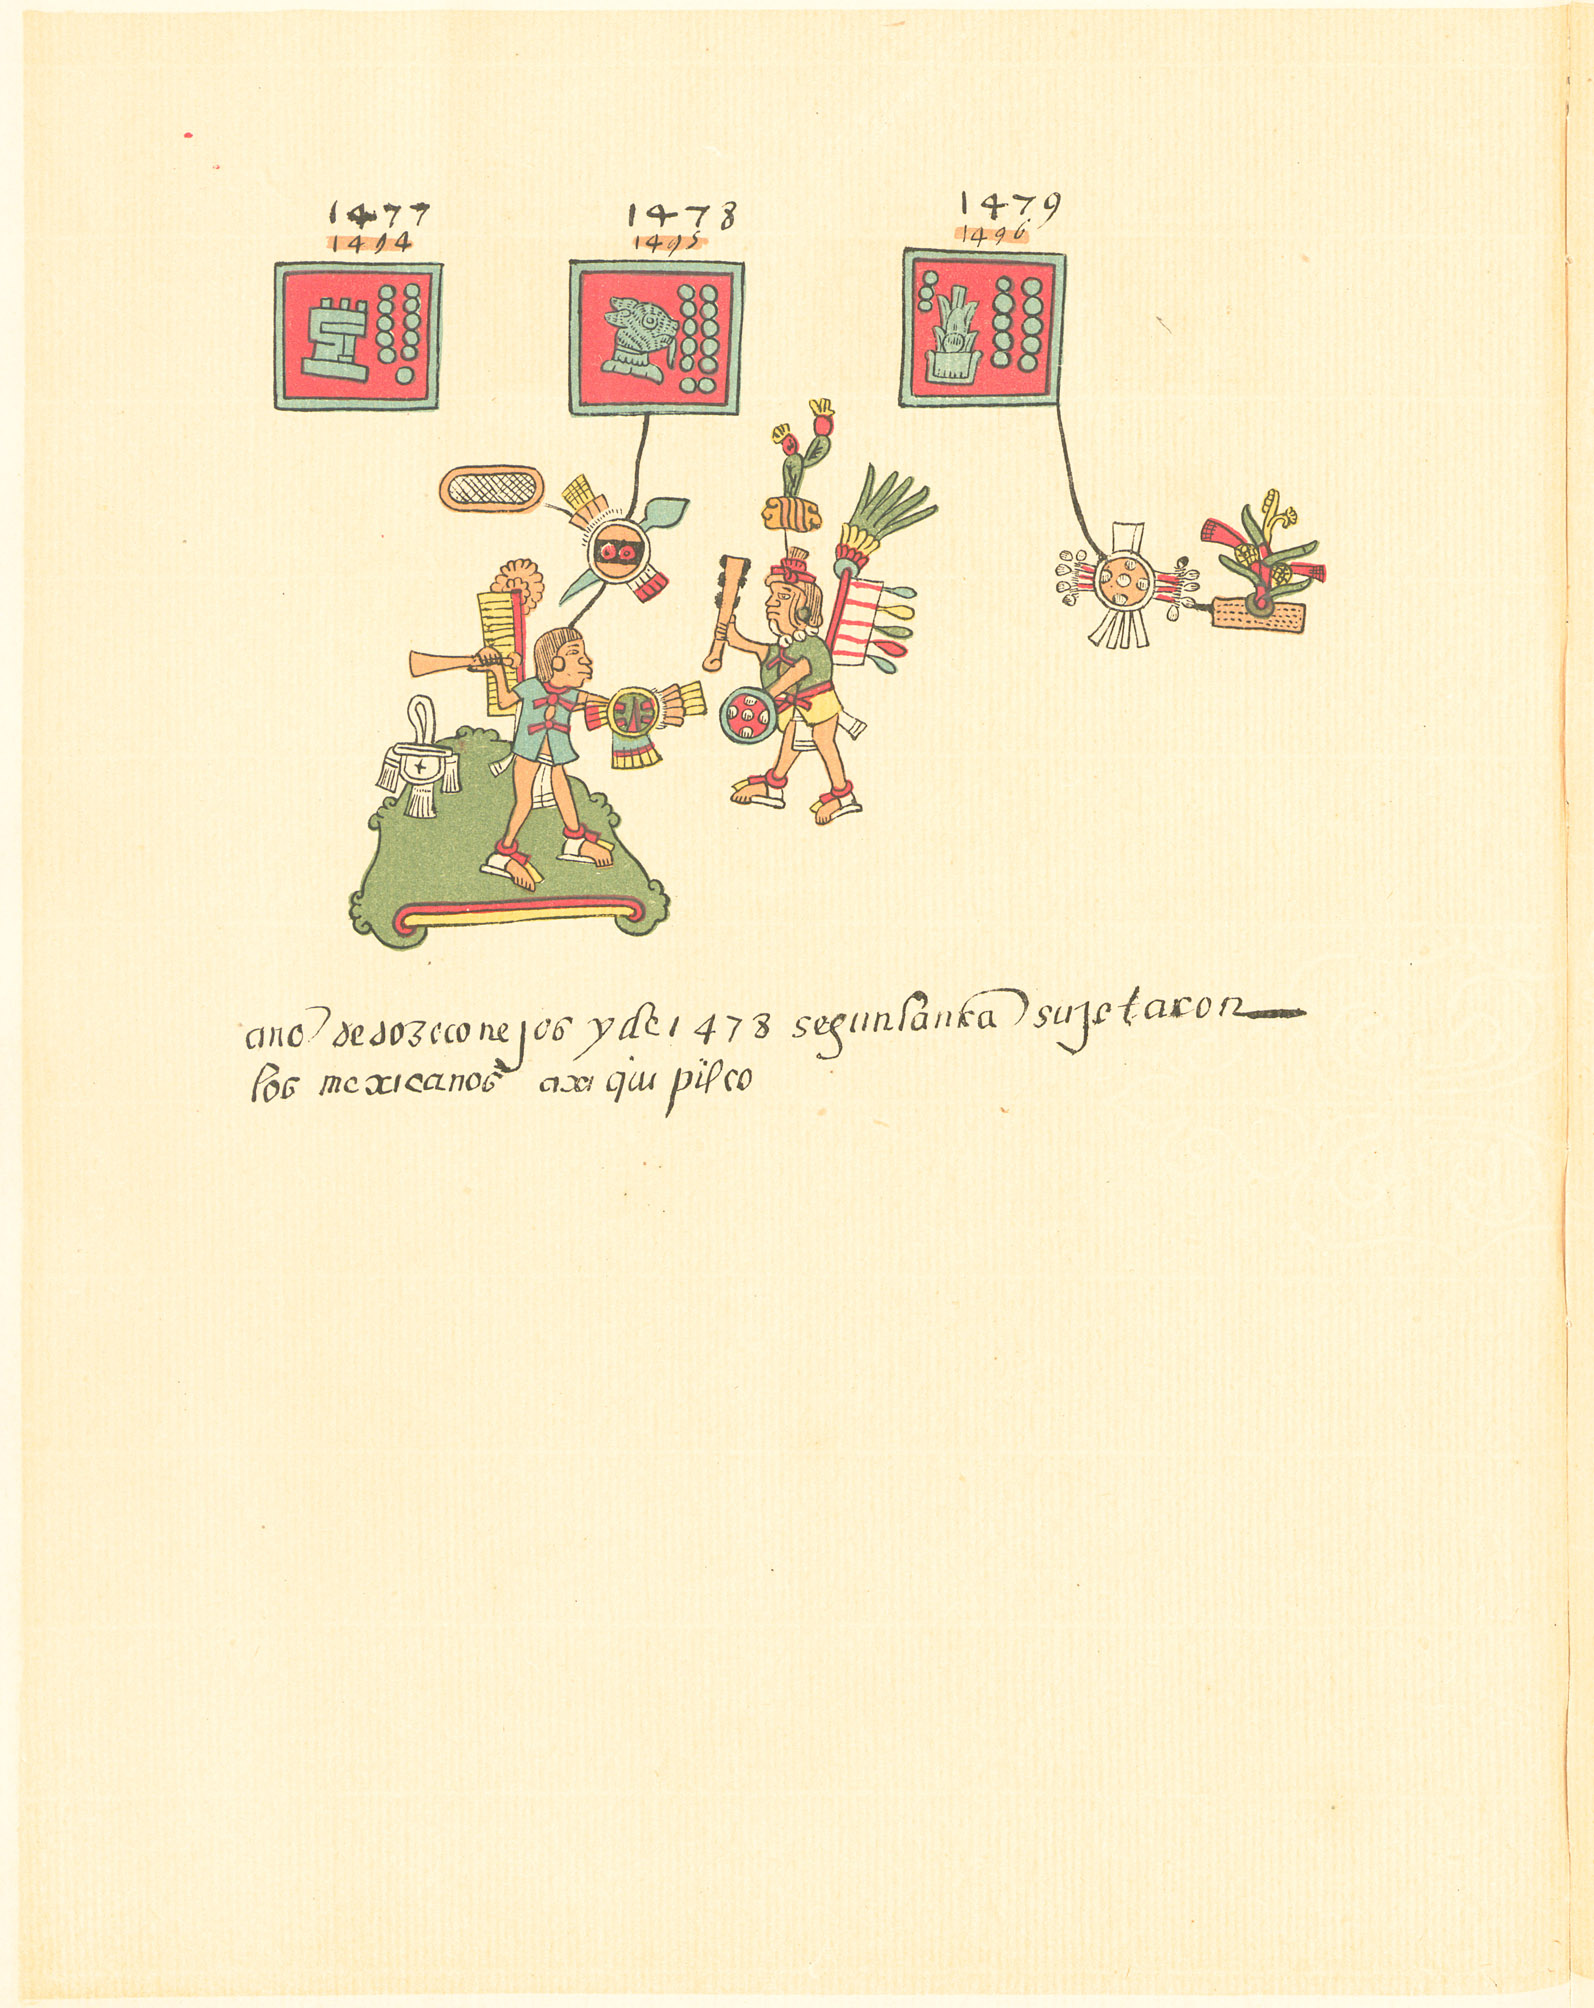 1477 1478 1479
1494 1495 1496
ano de doze conejos y de 1478 segun la nŕa sujetaron
los mexicanos axiquipilco